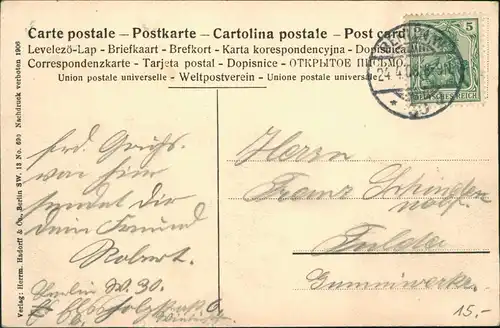 Carte postale – Postkarte – Cartolina postale – Post card
Levelező-Lap - Briefkaart - Brefkort - Karta korespondencyjna - Dopisnica
Correspondenzkarte - Tarjeta postal - Dopisnice - ОТКРЫТОЕ ПИСЬМО
Union postale universelle - Weltpostverein - Unione postale universale
5
DEUTSCHES REICH
24.4.08
Verlag: Herrm. Hadorff & Co., Berlin SW. 13 No. 691 Nachdruck verboten 1906
Frd. Gruß
von hier
sendet Dir
Dein Freund
Robert.
Berlin W. 30.
Herrn
Franz
Fulda
Gummiwerke.
15,-